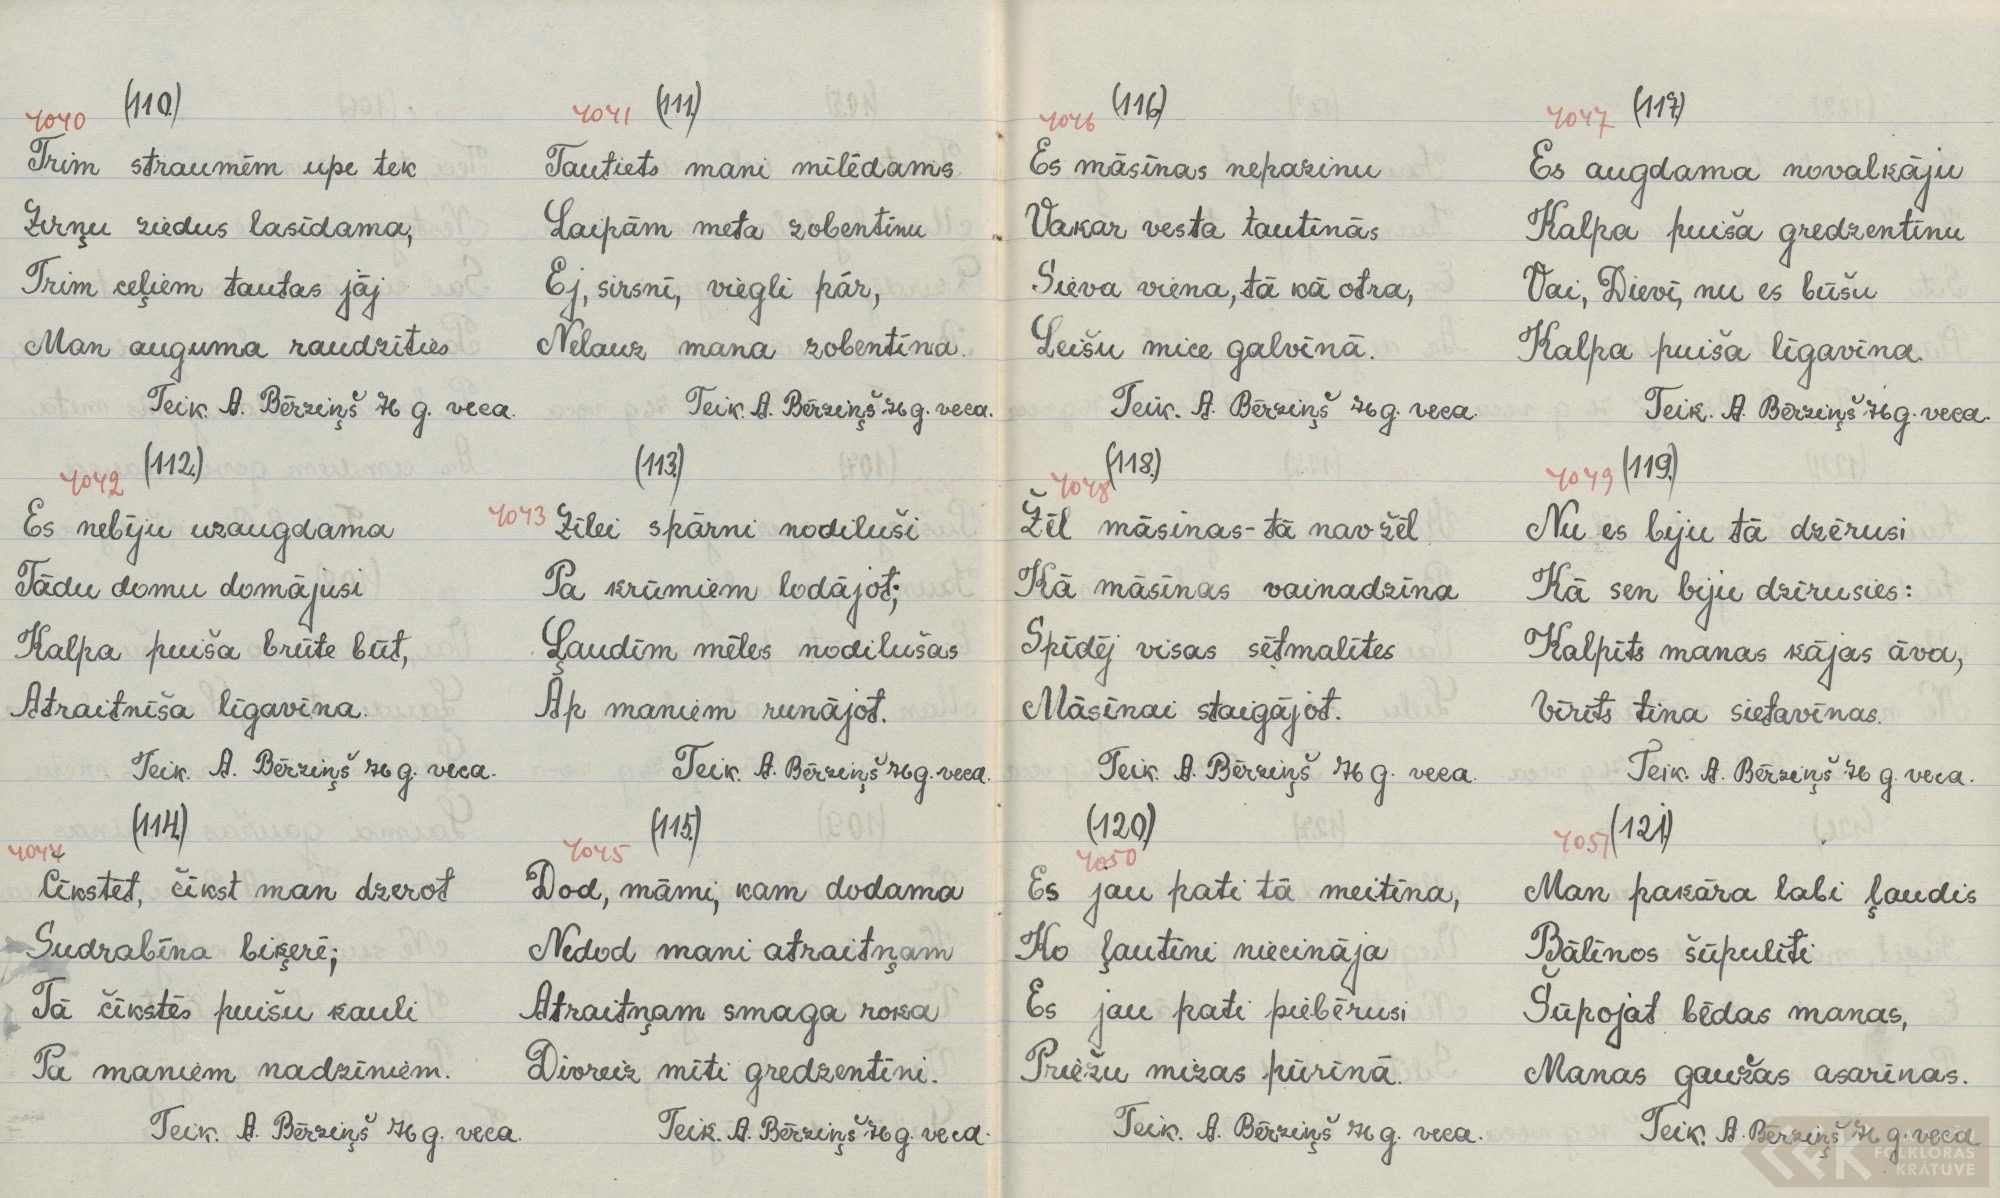 4040 (110.)
Trim straumēm upe tek
Zirņu ziedus lasīdama,
Trim ceļiem tautas jāj
Man auguma raudzīties
Teik. A. Bērziņš 76 g. veca.
4041 (111.)
Tautiets mani mīlēdams
Laipām meta zobentiņu
Ej, sirsnī, viegli pār,
Nelauz mana zobentīna.
Teik. A. Bērziņš 76 g. veca.
4042 (112.)
Es nebiju uzaugdama
Tādu domu domājusi
Kalpa puiša brūte būt,
Atraitnīša līgavīna.
Teik. A. Bērziņš 76 g. veca.
4043 (113.)
Zīlei spārni nodiluši
Pa krūmiem lodājot;
Ļaudīm mēles nodilušas
Ap maniem runājot.
Teik. A. Bērziņš 76 g. veca.
4044 (114.)
Čīkstēt, čīkst man dzerot
Sudrabīna biķerē;
Tā čīkstēs puišu kauli
Pa maniem nadzīniem.
Teik. A. Bērziņš 76 g. veca.
4045 (115.)
Dod, māmi, kam dodama
Nedod mani atraitņam
Atraitņam smaga roka
Divreiz mīti gredzentīni.
Teik. A. Bērziņš 76 g. veca.
4046 (116)
Es māsīnas nepazinu
Vakar vesta tautīnās
Sieva viena, tā kā otra,
Leišu mice galvīnā.
Teik. A. Bērziņš 76 g. veca.
4047 (117.)
Es augdama novalkāju
Kalpa puiša gredzentīnu
Vai, Dievī, nu es būšu
Kalpa puiša līgavīna.
Teik. A. Bērziņš 76 g. veca.
4048 (118.)
Žēl māsīnas - tā nav žēl
Kā māsīnas vainadzīna
Spīdēj visas sētmalītes
Māsīnai staigājot.
Teik. A. Bērziņš 76 g. veca.
4049 (119.)
Nu es biju tā dzērusi
Kā sen biju dzīrusies:
Kalpīts manas kājas āva,
Vīrīts tina sietavīnas.
Teik. A. Bērziņš 76 g. veca.
4050 (120.)
Es jau pati tā meitīna,
Ko ļautiņi niecināja
Es jau pati piebērusi
Priežu mizas pūrīnā.
Teik. A. Bērziņš 76 g. veca.
4051 (121.)
Man pakāra labi ļaudis
Bālīnos šūpulīti
Šūpojat bēdas manas,
Manas gaužas asarīnas.
Teik. A. Bērziņš 76 g. veca
FOLKLORAS
KRĀTUVE